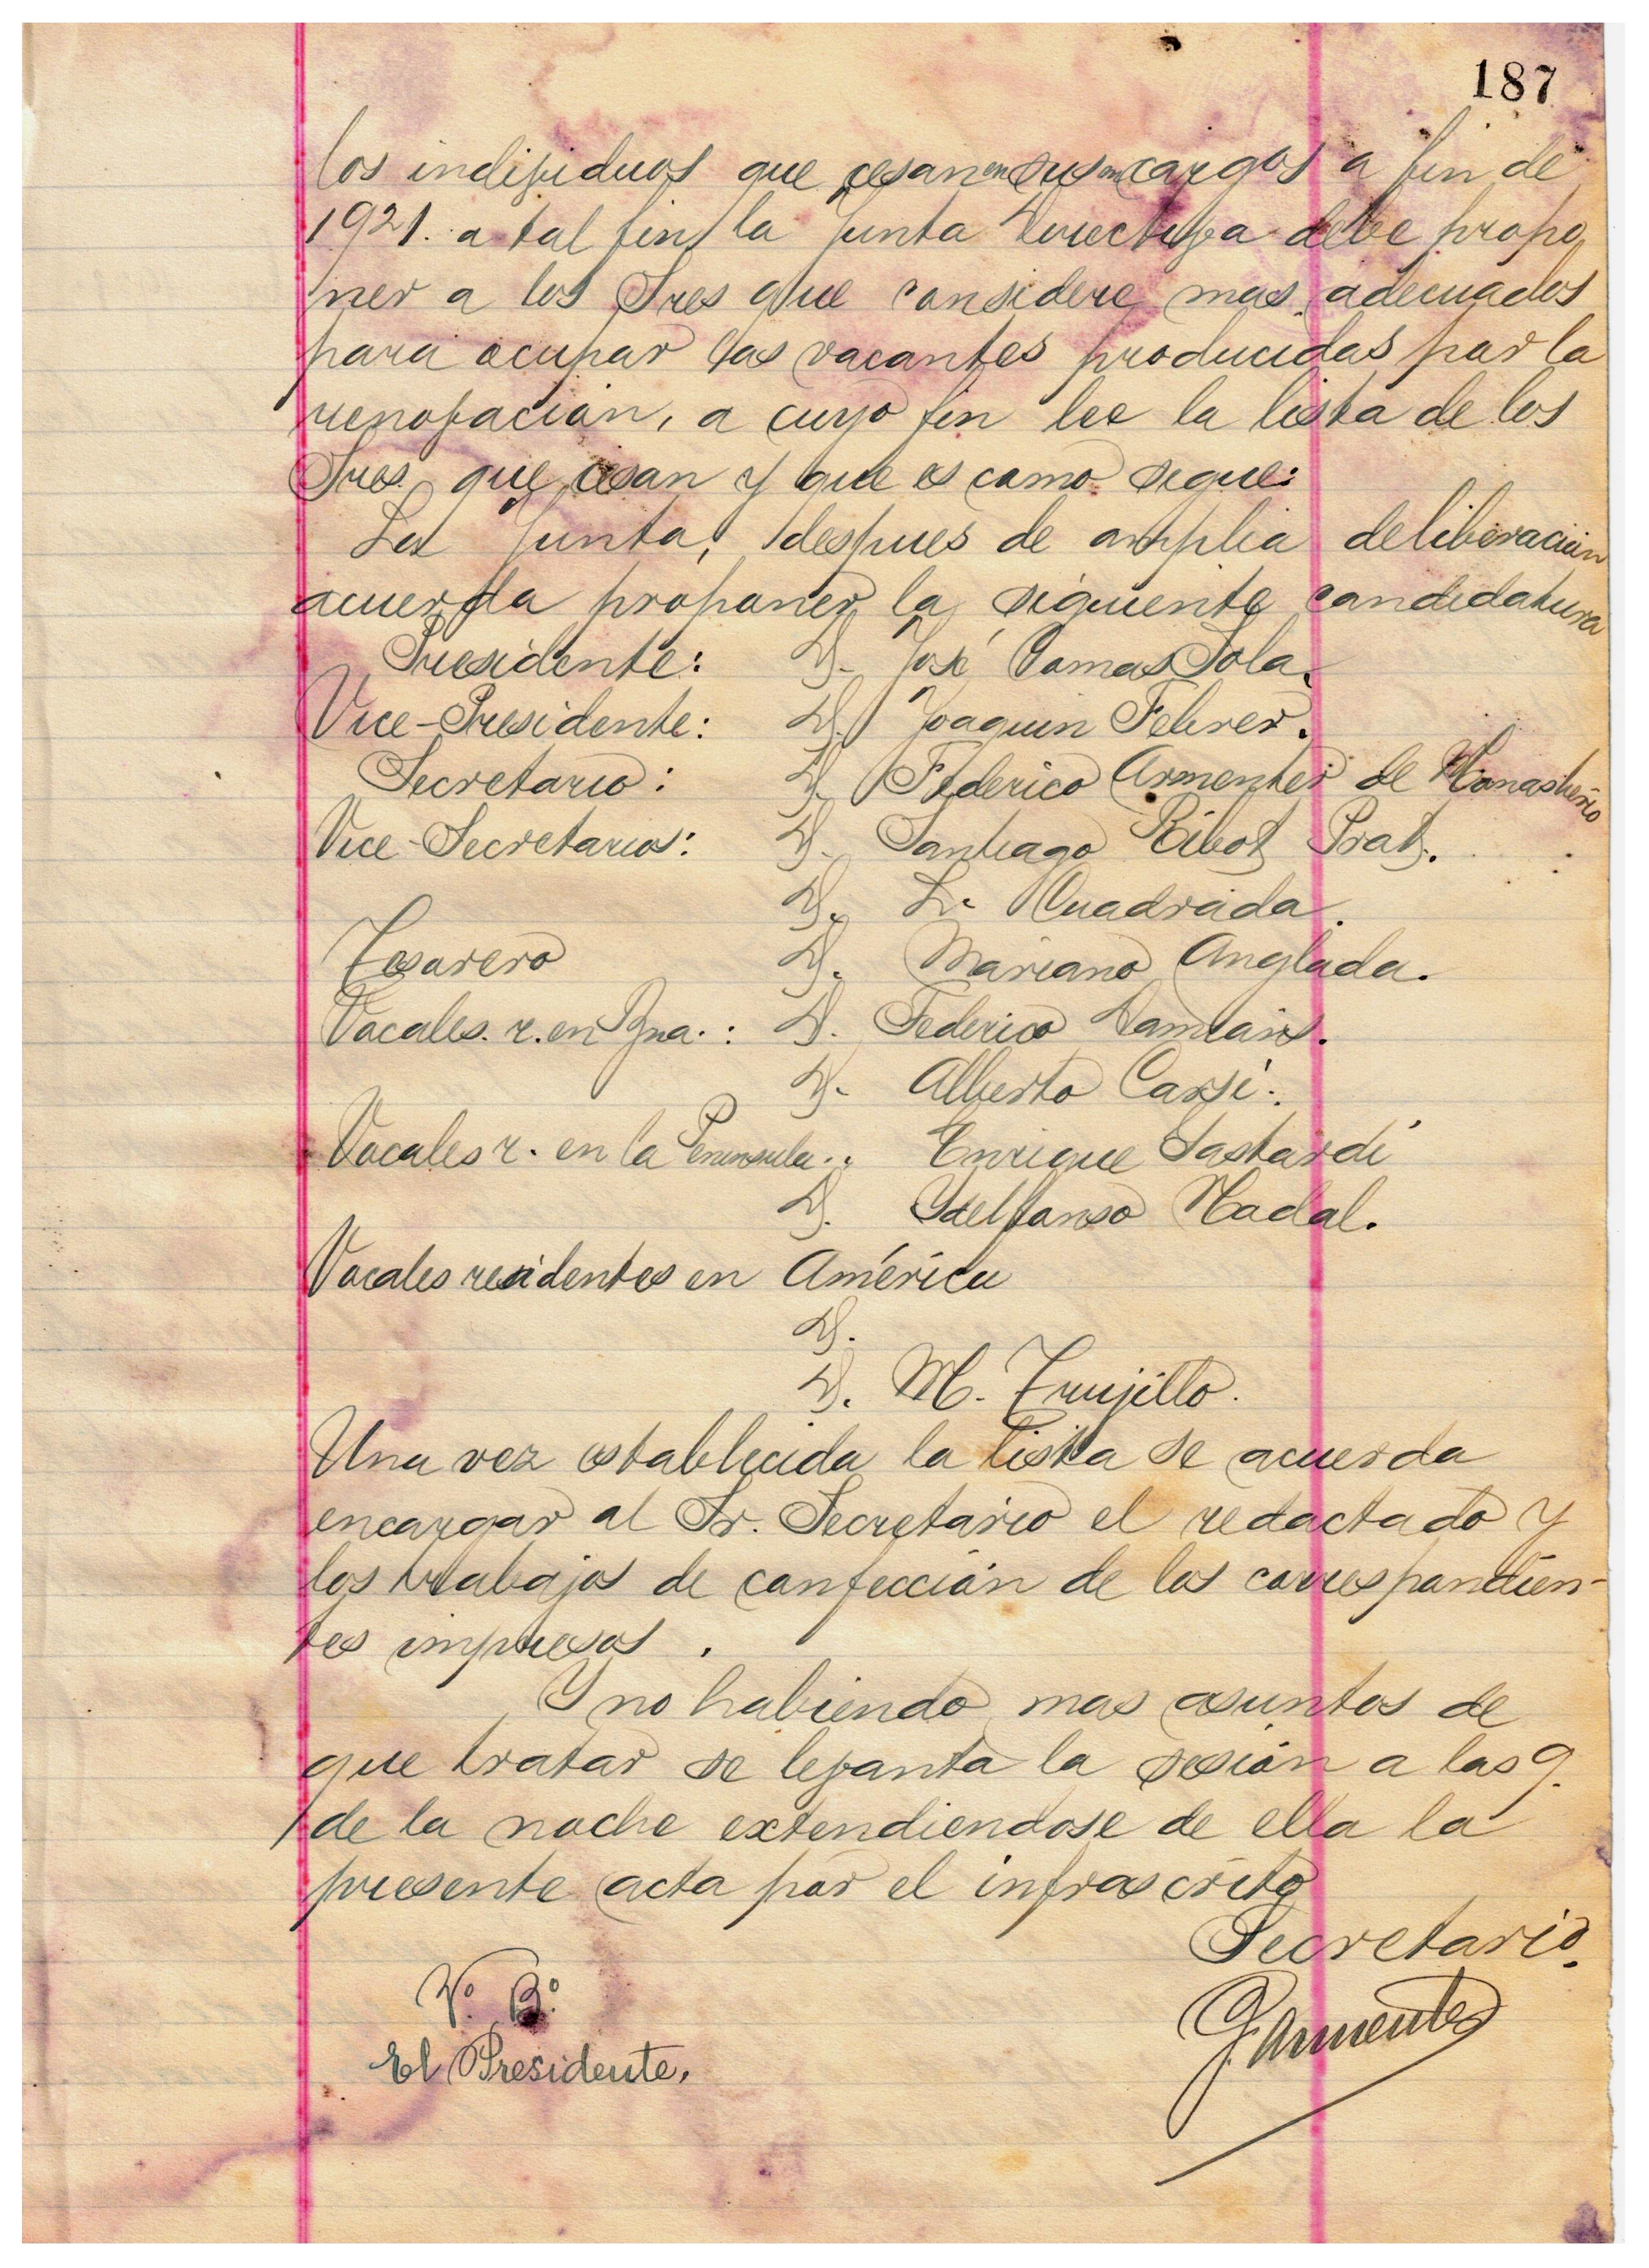 187
los individuos que cesan en sus cargos a fin de
1921. a tal fin la Junta Directiva debe propo
ner a los Sres que considere mas adecuados
para ocupar las vacantes producidas por la
renovación, a cuyo fin lee la lista de los
Sres. que cesan y que es como sigue:
La Junta, despues de amplia deliberación
acuerda proponer la siguiente candidatura
Presidente: D. José Comas Sola.
Vice-Presidente: D. Joaquin Febrer.
Secretario: D. Federico Armenter de Monasterio
Vice-Secretarios: D. Santiago Ribot Prat.
D. L. Cuadrada.
Tesorero D. Mariano Anglada.
Vocales. r. en Bna.: D. Federico Damians.
D. Alberto Carsi.
Vocales r. en la Peninsula.: Enrique Gastardi
D. Ydelfonso Nadal.
Vocales residentes en América
D.
D. M. Trujillo.
Una vez establecida la lista se acuerda
encargar al Sr. Secretario el redactado y
los trabajos de confección de los correspondien-
tes impresos.
Y no habiendo mas asuntos de
que tratar se levanta la sesión a las 9.
de la noche extendiendose de ella la
presente acta por el infrascrito
Secretario.
V.º B.º
El Presidente,
F. Armenter